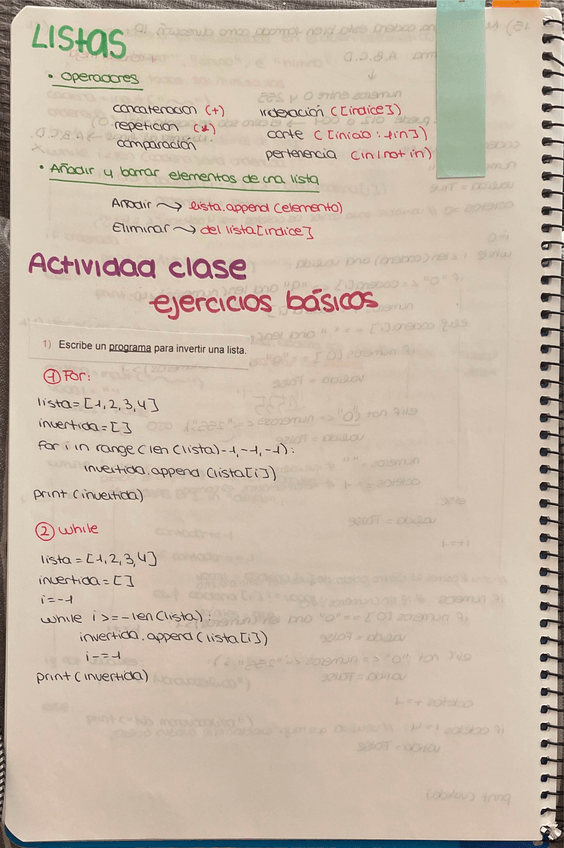 LISTAS
• operadores
concatenación (+) indexación ([índice])
repetición (*) corte ([inicio : fin])
comparación pertenencia (in/not in)
• Añadir y borrar elementos de una lista
Añadir → lista.append(elemento)
Eliminar → del lista[índice]
Actividad clase
-ejercicios básicos
1) Escribe un programa para invertir una lista.
① For:
lista=[1,2,3,4]
invertida=[]
for i in range(len(lista)-1,-1,-1):
invertida.append(lista[i])
print(invertida)
② while
lista=[1,2,3,4]
invertida=[]
i=-1
while i>=-len(lista):
invertida.append(lista[i])
i-=1
print(invertida)